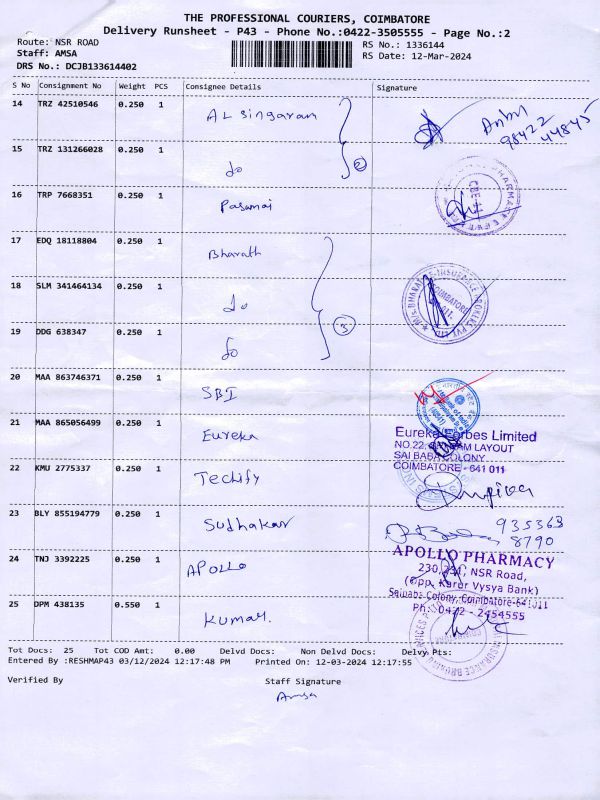 THE PROFESSIONAL COURIERS, COIMBATORE
Delivery Runsheet - P43 - Phone No.:0422-3505555 - Page No.:2
Route: NSR ROAD
Staff: AMSA
DRS No.: DCJB133614402
RS No.: 1336144
RS Date: 12-Mar-2024
S No Consignment No Weight PCS Consignee Details Signature
14 TRZ 42510546 0.250 1 AL Singaram
98422
44845
15 TRZ 131266028 0.250 1 do 2
16 TRP 7668351 0.250 1 Pasumai
17 EDQ 18118804 0.250 1 Bharath
18 SLM 341464134 0.250 1 do
19 DDG 638347 0.250 1 do 3
20 MAA 863746371 0.250 1 SBI
21 MAA 865056499 0.250 1 Eureka
Eureka Forbes Limited
LAYOUT
SAI BABA COLONY
COIMBATORE - 641 011
22 KMU 2775337 0.250 1 Techify
23 BLY 855194779 0.250 1 Sudhakar
935363
8790
24 TNJ 3392225 0.250 1 APOLLO
APOLLO PHARMACY
NSR Road,
(Opp. Karur Vysya Bank)
Saibaba Colony, Coimbatore-641011
Ph: 0422 - 2454555
25 DPM 438135 0.550 1 Kumar.
Tot Docs: 25 Tot COD Amt: 0.00 Delvd Docs: Non Delvd Docs: Delvy Pts:
Entered By :RESHMAP43 03/12/2024 12:17:48 PM Printed On: 12-03-2024 12:17:55
Verified By Staff Signature
Amsa